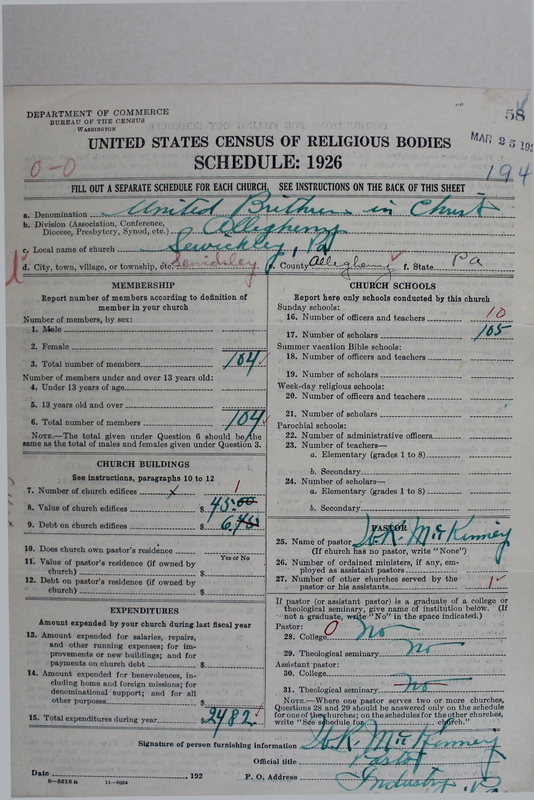 DEPARTMENT OF COMMERCE
BUREAU OF THE CENSUS
WASHINGTON
58
MAR 25 192
UNITED STATES CENSUS OF RELIGIOUS BODIES
SCHEDULE: 1926
0-0
194
FILL OUT A SEPARATE SCHEDULE FOR EACH CHURCH. SEE INSTRUCTIONS ON THE BACK OF THIS SHEET
a. Denomination United Brethren in Christ
b. Division (Association, Conference,
Diocese, Presbytery, Synod, etc.) Allegheny
c. Local name of church Sewickley, Pa
d. City, town, village, or township, etc. Sewickley e. County Allegheny f. State Pa
MEMBERSHIP
Report number of members according to definition of
member in your church
Number of members, by sex:
1. Male
2. Female
3. Total number of members 104
Number of members under and over 13 years old:
4. Under 13 years of age
5. 13 years old and over
6. Total number of members 104
NOTE.—The total given under Question 6 should be the
same as the total of males and females given under Question 3.
CHURCH BUILDINGS
See instructions, paragraphs 10 to 12
7. Number of church edifices x 1
8. Value of church edifices $
9. Debt on church edifices $
10. Does church own pastor's residence
Yes or No
11. Value of pastor's residence (if owned by
church) $
12. Debt on pastor's residence (if owned by
church) $
EXPENDITURES
Amount expended by your church during last fiscal year
13. Amount expended for salaries, repairs,
and other running expenses; for im-
provements or new buildings; and for
payments on church debt $
14. Amount expended for benevolences, in-
cluding home and foreign missions; for
denominational support; and for all
other purposes $
15. Total expenditures during year $2482
CHURCH SCHOOLS
Report here only schools conducted by this church
Sunday schools:
16. Number of officers and teachers 10
17. Number of scholars 105
Summer vacation Bible schools:
18. Number of officers and teachers
19. Number of scholars
Week-day religious schools:
20. Number of officers and teachers
21. Number of scholars
Parochial schools:
22. Number of administrative officers
23. Number of teachers—
a. Elementary (grades 1 to 8)
b. Secondary
24. Number of scholars—
a. Elementary (grades 1 to 8)
b. Secondary
PASTOR
25. Name of pastor W. R. McKinney
(If church has no pastor, write "None")
26. Number of ordained ministers, if any, em-
ployed as assistant pastors
27. Number of other churches served by the
pastor or his assistants 1
If pastor (or assistant pastor) is a graduate of a college or
theological seminary, give name of institution below. (If
not a graduate, write "No" in the space indicated.)
Pastor:
28. College 0 No
29. Theological seminary No
Assistant pastor:
30. College
31. Theological seminary No
NOTE.—Where one pastor serves two or more churches,
Questions 28 and 29 should be answered only on the schedule
for one of the churches; on the schedules for the other churches,
write "See schedule for church."
Signature of person furnishing information W. R. McKinney
Official title Pastor
Date , 192 P. O. Address Industry, Pa
8—5518a 11—9084